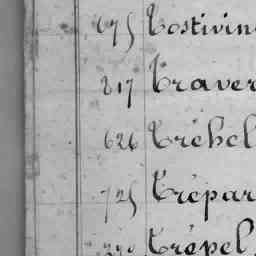 675 Tostivin
817 Traver
626 Tréhel
725 Trépar
Trépel